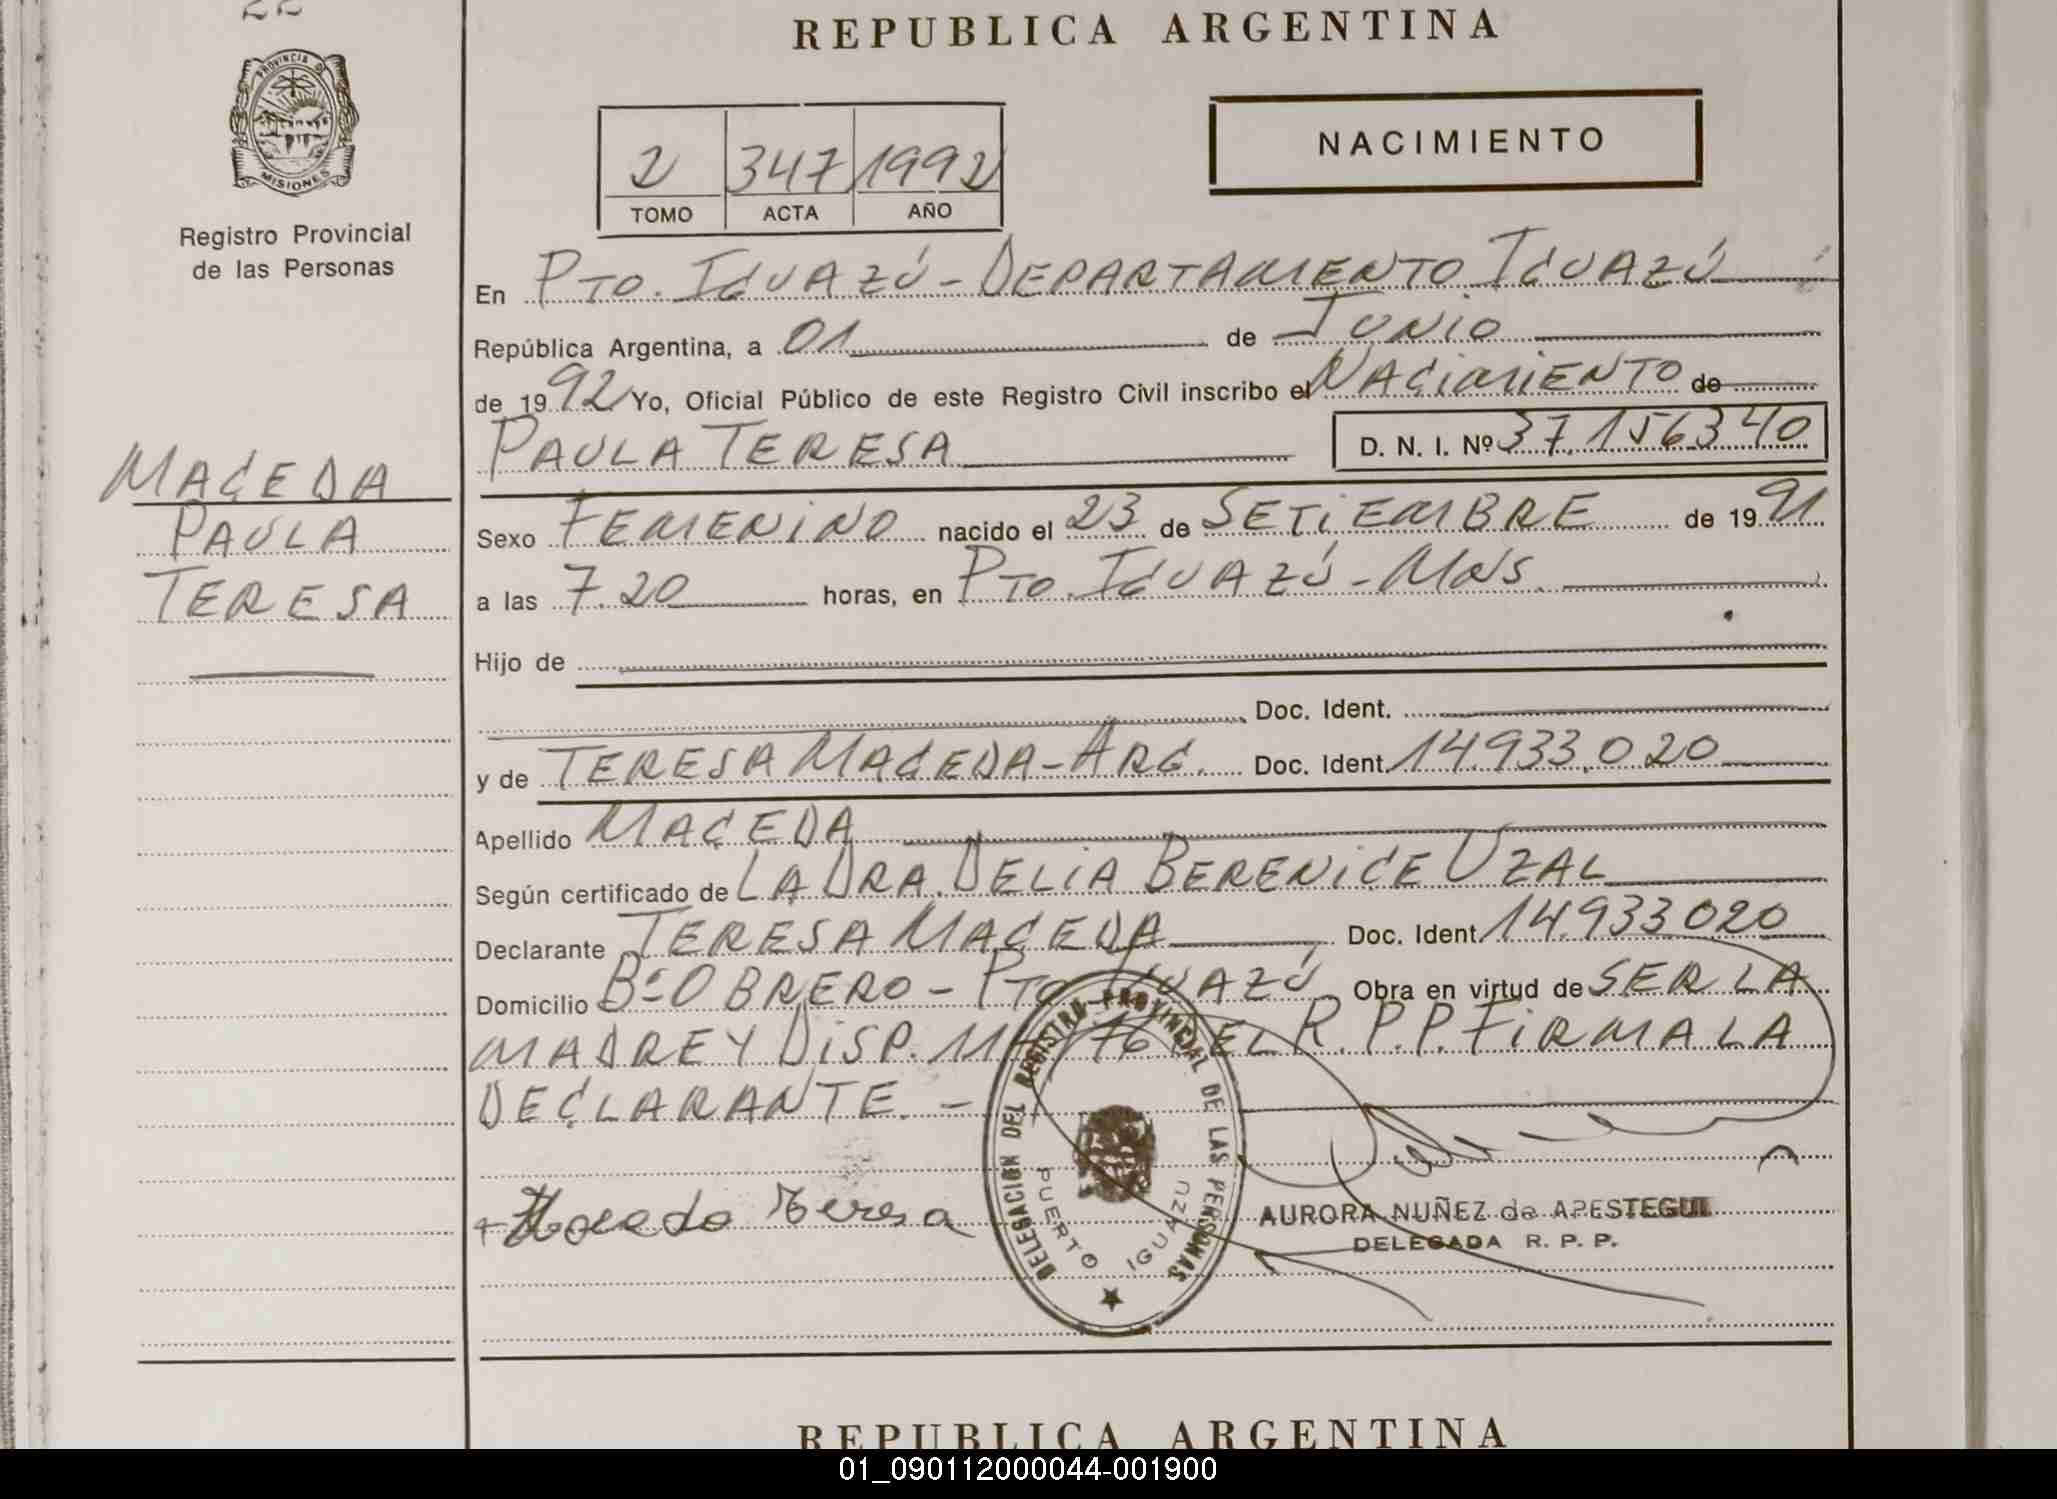 REPUBLICA ARGENTINA
PROVINCIA DE
MISIONES
Registro Provincial
de las Personas
NACIMIENTO
2 347 1992
TOMO ACTA AÑO
En PTO. IGUAZÚ - DEPARTAMENTO IGUAZÚ
República Argentina, a 01 de JUNIO
de 1992 Yo, Oficial Público de este Registro Civil inscribo el NACIMIENTO de
PAULA TERESA D. N. I. Nº 37.156340
MACEDA
PAULA
TERESA
Sexo FEMENINO nacido el 23 de SETIEMBRE de 1991
a las 7.20 horas, en PTO. IGUAZÚ - Mns.
Hijo de
Doc. Ident.
y de TERESA MACEDA - ARG. Doc. Ident. 14.933.020
Apellido MACEDA
Según certificado de LA DRA. DELIA BERENICE UZAL
Declarante TERESA MACEDA Doc. Ident. 14.933020
Domicilio Bº OBRERO - PTO IGUAZÚ Obra en virtud de SER LA
MADRE Y DISP. DEL R.P.P. FIRMA LA
DECLARANTE. -
Maceda Teresa
DELEGACION DEL REGISTRO PROVINCIAL DE LAS PERSONAS
PUERTO IGUAZU
AURORA NUÑEZ de APESTEGUI
DELEGADA R. P. P.
REPUBLICA ARGENTINA
01_090112000044-001900